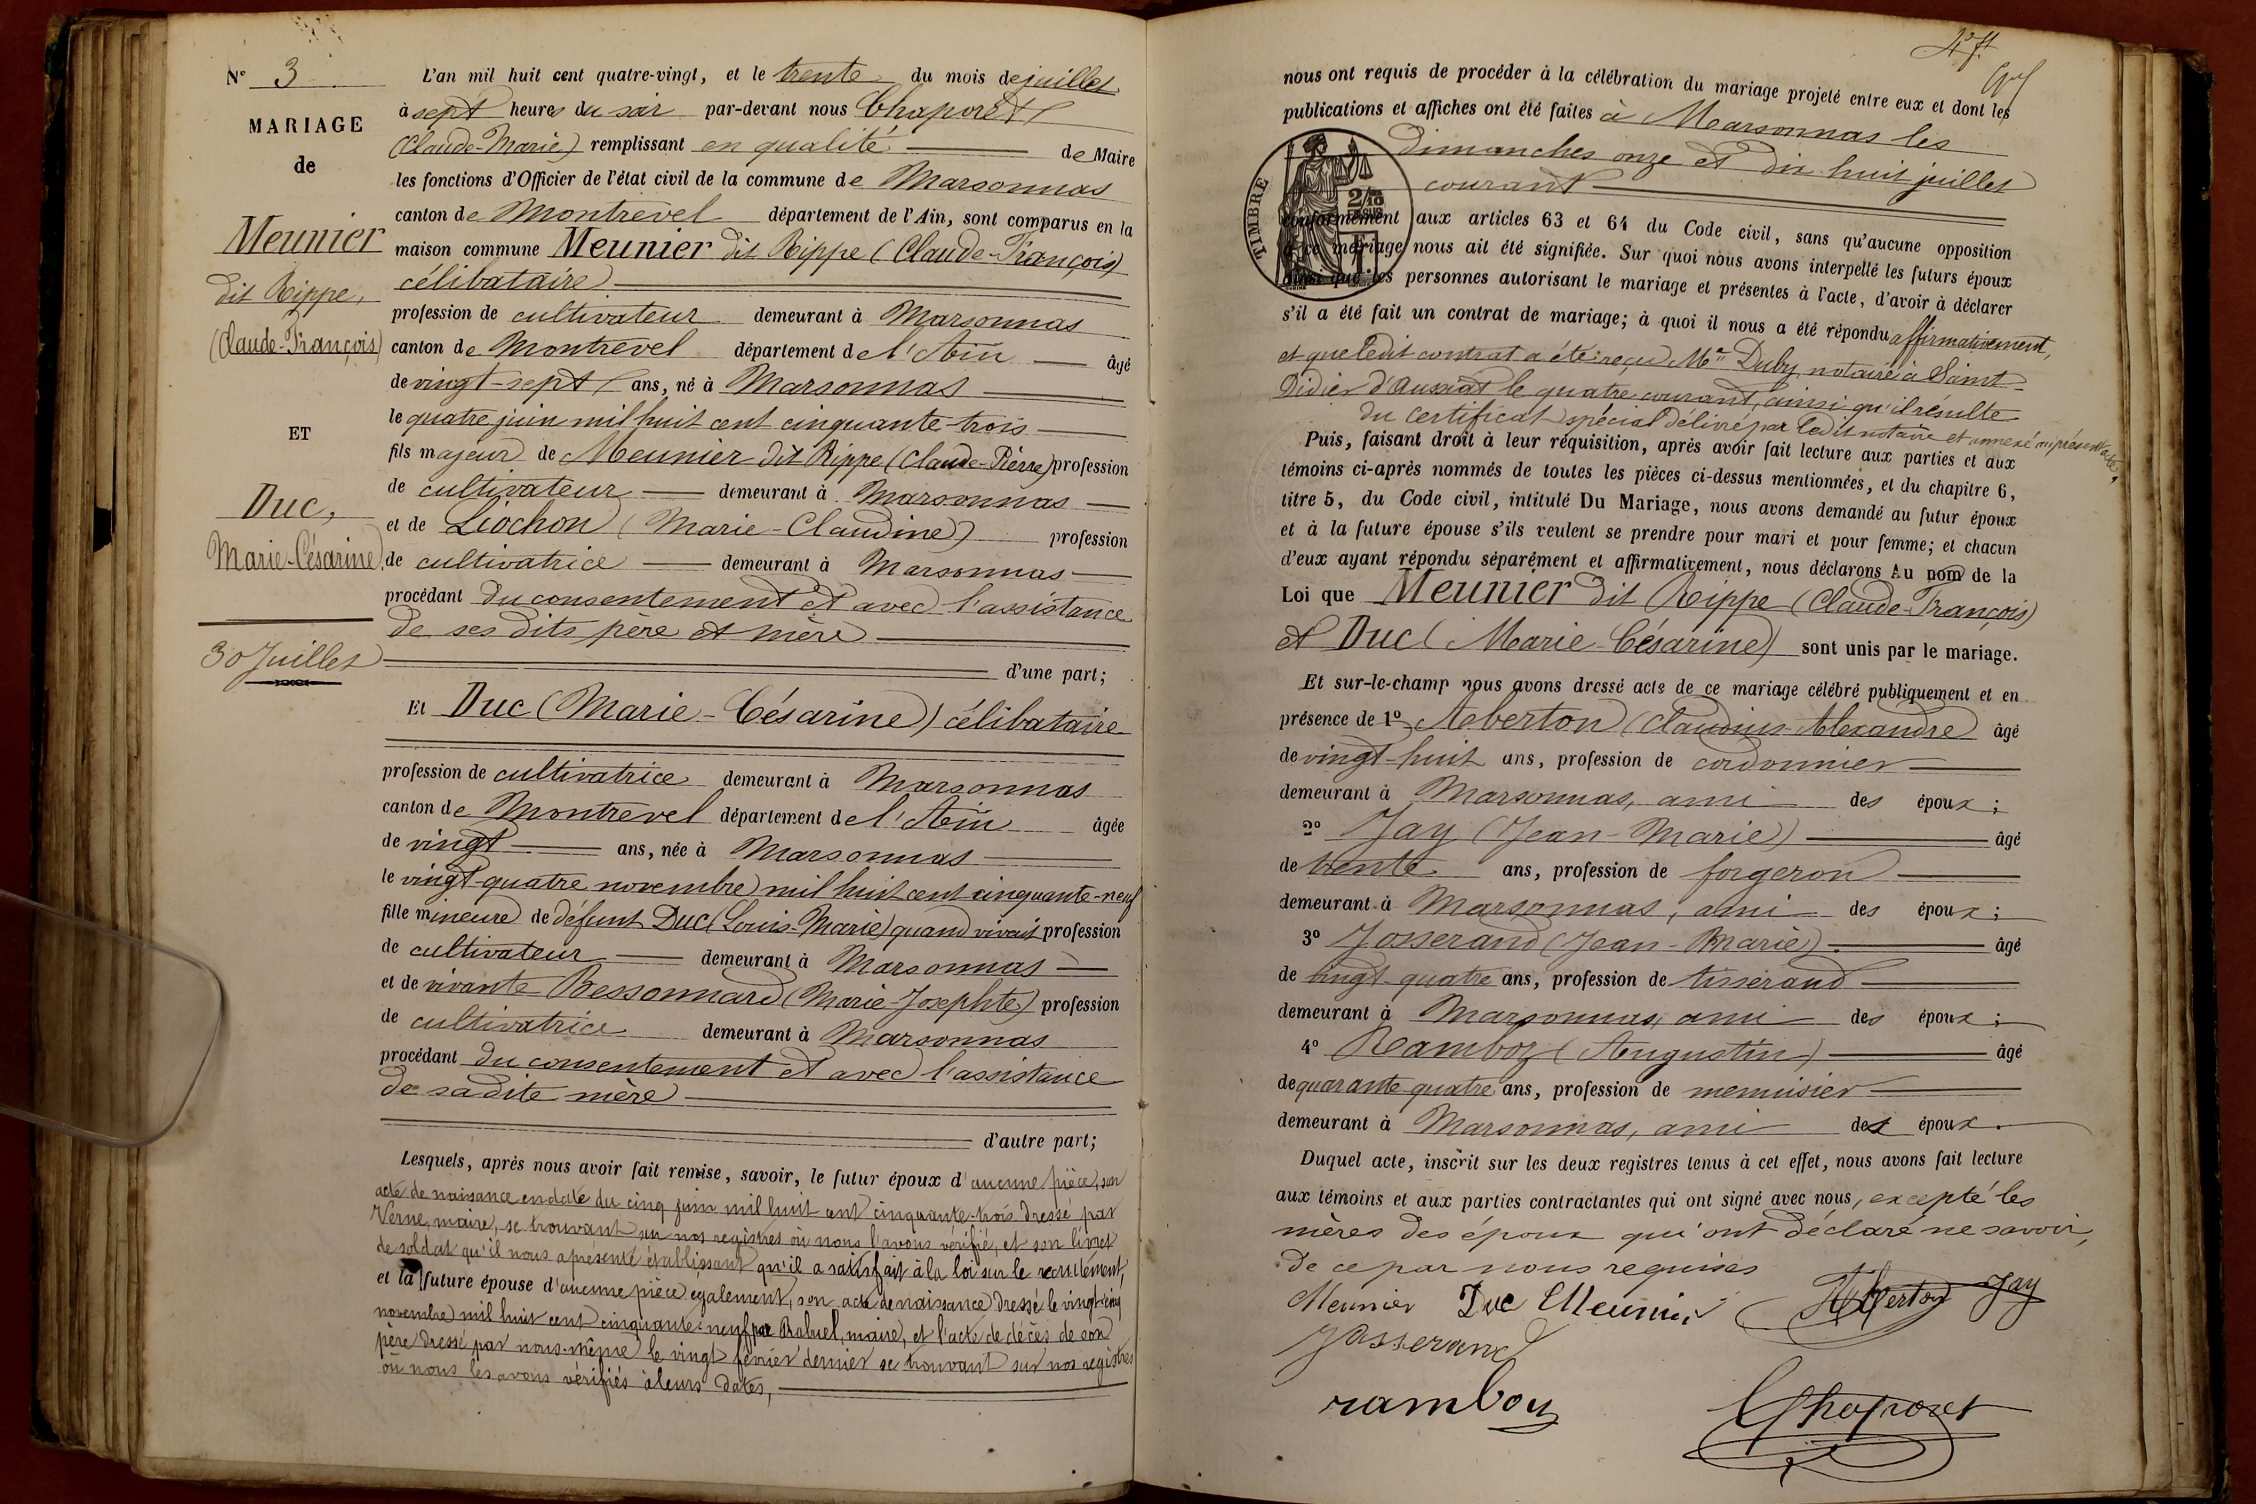 N° 3
MARIAGE
de
Meunier
dit Rippe,
(Claude-François)
ET
Duc,
Marie-Césarine
30 Juillet
L'an mil huit cent quatre-vingt, et le trente du mois de juillet
à sept heures du soir par-devant nous Chaporet
(Claude-Marie) remplissant en qualité de Maire
les fonctions d'Officier de l'état civil de la commune de Marsonnas
canton de Montrevel département de l'Ain, sont comparus en la
maison commune Meunier dit Rippe (Claude-François)
célibataire
profession de cultivateur demeurant à Marsonnas
canton de Montrevel département de l'Ain âgé
de vingt-sept ans, né à Marsonnas
le quatre juin mil huit cent cinquante-trois
fils majeur de Meunier dit Rippe (Claude-Pierre) profession
de cultivateur demeurant à Marsonnas
et de Liochon (Marie-Claudine) profession
de cultivatrice demeurant à Marsonnas
procédant du consentement et avec l'assistance
de ses dits père et mère
d'une part;
Et Duc (Marie-Césarine) célibataire
profession de cultivatrice demeurant à Marsonnas
canton de Montrevel département de l'Ain âgée
de vingt ans, née à Marsonnas
le vingt-quatre novembre mil huit cent cinquante-neuf
fille mineure de défunt Duc (Louis-Marie) quand vivait profession
de cultivateur demeurant à Marsonnas
et de vivante Bessonnard (Marie-Josephte) profession
de cultivatrice demeurant à Marsonnas
procédant du consentement et avec l'assistance
de sa dite mère
d'autre part;
Lesquels, après nous avoir fait remise, savoir, le futur époux d'aucune pièce, son
acte de naissance en date du cinq juin mil huit cent cinquante-trois dressé par
Verne, maire, se trouvant sur nos registres où nous l'avons vérifié, et son livret
de soldat qu'il nous a présenté établissant qu'il a satisfait à la loi sur le recrutement,
et la future épouse d'aucune pièce également, son acte de naissance dressé le vingt-cinq
novembre mil huit cent cinquante-neuf par Rabuel, maire, et l'acte de décès de son
père dressé par nous-même le vingt février dernier se trouvant sur nos registres
où nous les avons vérifiés à leurs dates,
47
nous ont requis de procéder à la célébration du mariage projeté entre eux et dont les
publications et affiches ont été faites à Marsonnas les
dimanches onze et dix-huit juillet
courant
TIMBRE
conformément aux articles 63 et 64 du Code civil, sans qu'aucune opposition
à ce mariage nous ait été signifiée. Sur quoi nous avons interpellé les futurs époux
ainsi que les personnes autorisant le mariage et présentes à l'acte, d'avoir à déclarer
s'il a été fait un contrat de mariage; à quoi il nous a été répondu affirmativement,
et que ledit contrat a été reçu Me Duby notaire à Saint-
Didier d'Aussiat le quatre courant, ainsi qu'il résulte
du certificat spécial délivré par ledit notaire et annexé au présent acte,
Puis, faisant droit à leur réquisition, après avoir fait lecture aux parties et aux
témoins ci-après nommés de toutes les pièces ci-dessus mentionnées, et du chapitre 6,
titre 5, du Code civil, intitulé Du Mariage, nous avons demandé au futur époux
et à la future épouse s'ils veulent se prendre pour mari et pour femme; et chacun
d'eux ayant répondu séparément et affirmativement, nous déclarons Au nom de la
Loi que Meunier dit Rippe (Claude-François)
et Duc (Marie-Césarine) sont unis par le mariage.
Et sur-le-champ nous avons dressé acte de ce mariage célébré publiquement et en
présence de 1° Aberton (Claudius-Alexandre) âgé
de vingt-huit ans, profession de cordonnier
demeurant à Marsonnas, ami des époux;
2° Jay (Jean-Marie) âgé
de trente ans, profession de forgeron
demeurant à Marsonnas, ami des époux;
3° Josserand (Jean-Marie) âgé
de vingt-quatre ans, profession de tisserand
demeurant à Marsonnas, ami des époux;
4° Ramboz (Augustin) âgé
de quarante quatre ans, profession de menuisier
demeurant à Marsonnas, ami des époux.
Duquel acte, inscrit sur les deux registres tenus à cet effet, nous avons fait lecture
aux témoins et aux parties contractantes qui ont signé avec nous, excepté les
mères des époux qui ont déclaré ne savoir,
de ce par nous requises
Meunier Duc Meunier Aberton Jay
Josserand
ramboz
Chaporet